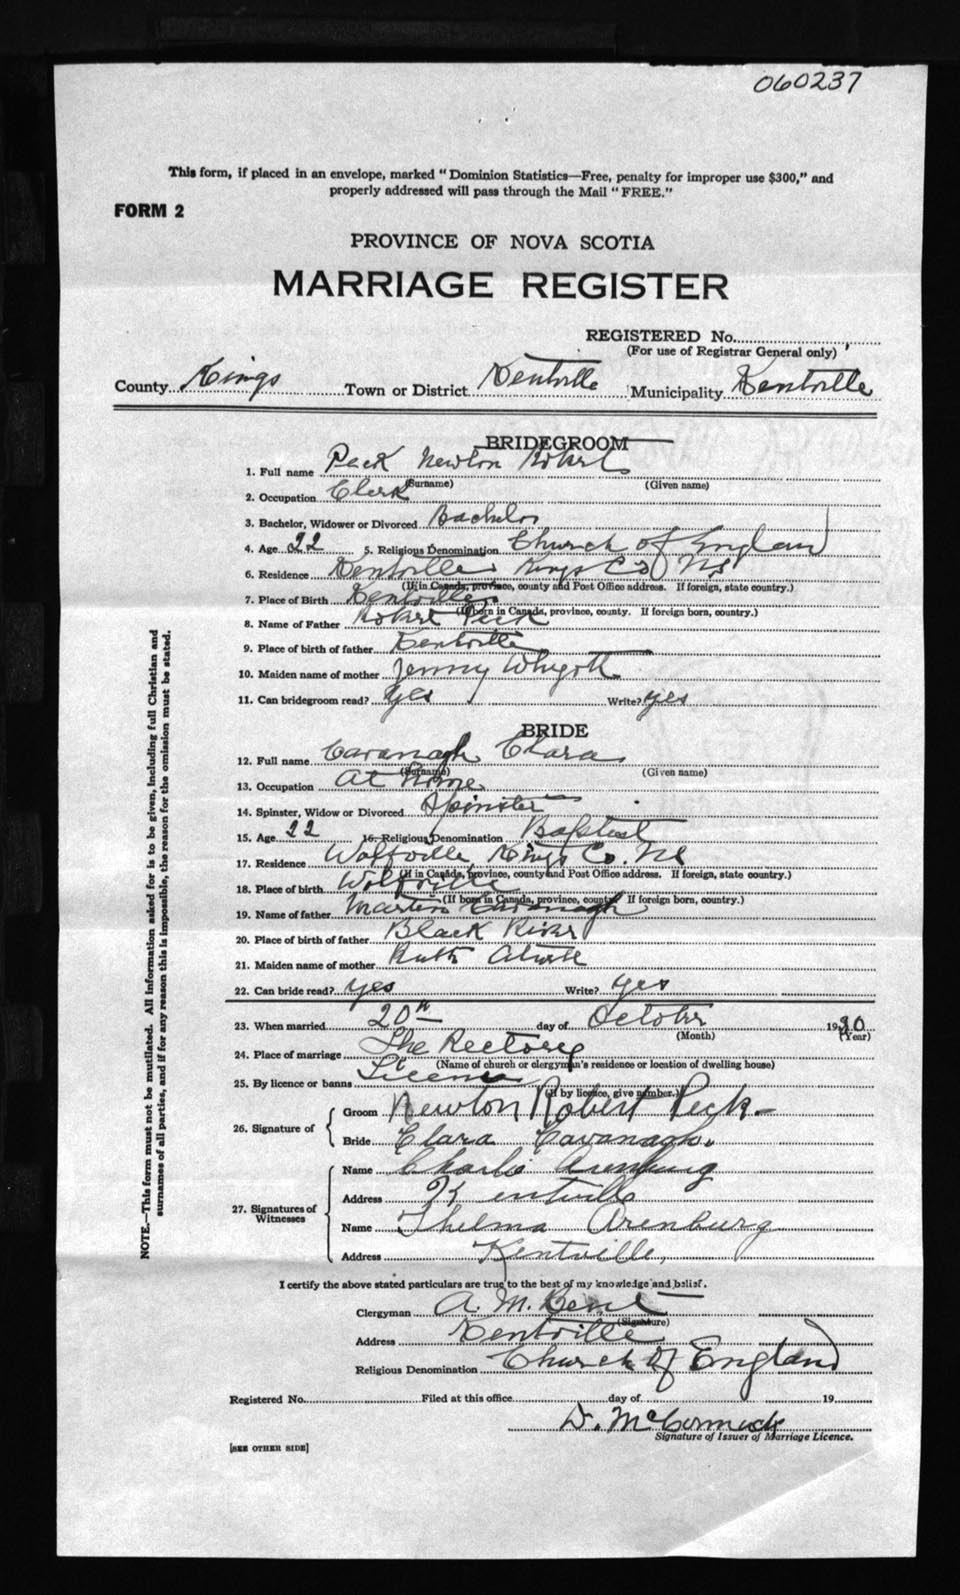 060237
This form, if placed in an envelope, marked "Dominion Statistics—Free, penalty for improper use $300," and
properly addressed will pass through the Mail "FREE."
FORM 2
PROVINCE OF NOVA SCOTIA
MARRIAGE REGISTER
REGISTERED No.
(For use of Registrar General only)
County Kings Town or District Kentville Municipality Kentville
BRIDEGROOM
1. Full name Peck Newton Robert
(Surname) (Given name)
2. Occupation Clerk
3. Bachelor, Widower or Divorced Bachelor
4. Age 22 5. Religious Denomination Church of England
6. Residence Kentville Kings Co NS
(If in Canada, province, county and Post Office address. If foreign, state country.)
7. Place of Birth Kentville
(If born in Canada, province, county. If foreign born, country.)
8. Name of Father Robert Peck
9. Place of birth of father Kentville
10. Maiden name of mother Jenny
11. Can bridegroom read? yes Write? yes
BRIDE
12. Full name Cavanagh Clara
(Surname) (Given name)
13. Occupation At Home
14. Spinster, Widow or Divorced Spinster
15. Age 22 16. Religious Denomination Baptist
17. Residence Wolfville Kings Co. NS
(If in Canada, province, county and Post Office address. If foreign, state country.)
18. Place of birth Wolfville
(If born in Canada, province, county. If foreign born, country.)
19. Name of father Martin Cavanagh
20. Place of birth of father Black River
21. Maiden name of mother Ruth
22. Can bride read? yes Write? yes
23. When married 20th day of October 1930
(Month) (Year)
24. Place of marriage The Rectory
(Name of church or clergyman's residence or location of dwelling house)
25. By licence or banns License
(If by licence, give number.)
26. Signature of Groom Newton Robert Peck
Bride Clara Cavanagh.
27. Signatures of Witnesses Name Charlie Arenburg
Address Kentville
Name Thelma Arenburg
Address Kentville,
I certify the above stated particulars are true to the best of my knowledge and belief.
Clergyman A. M. Bent
(Signature)
Address Kentville
Religious Denomination Church of England
Registered No. Filed at this office day of 19
D. McCormick
Signature of Issuer of Marriage Licence.
[SEE OTHER SIDE]
NOTE.—This form must not be mutilated. All information asked for is to be given, including full Christian and
surnames of all parties, and if for any reason this is impossible, the reason for the omission must be stated.